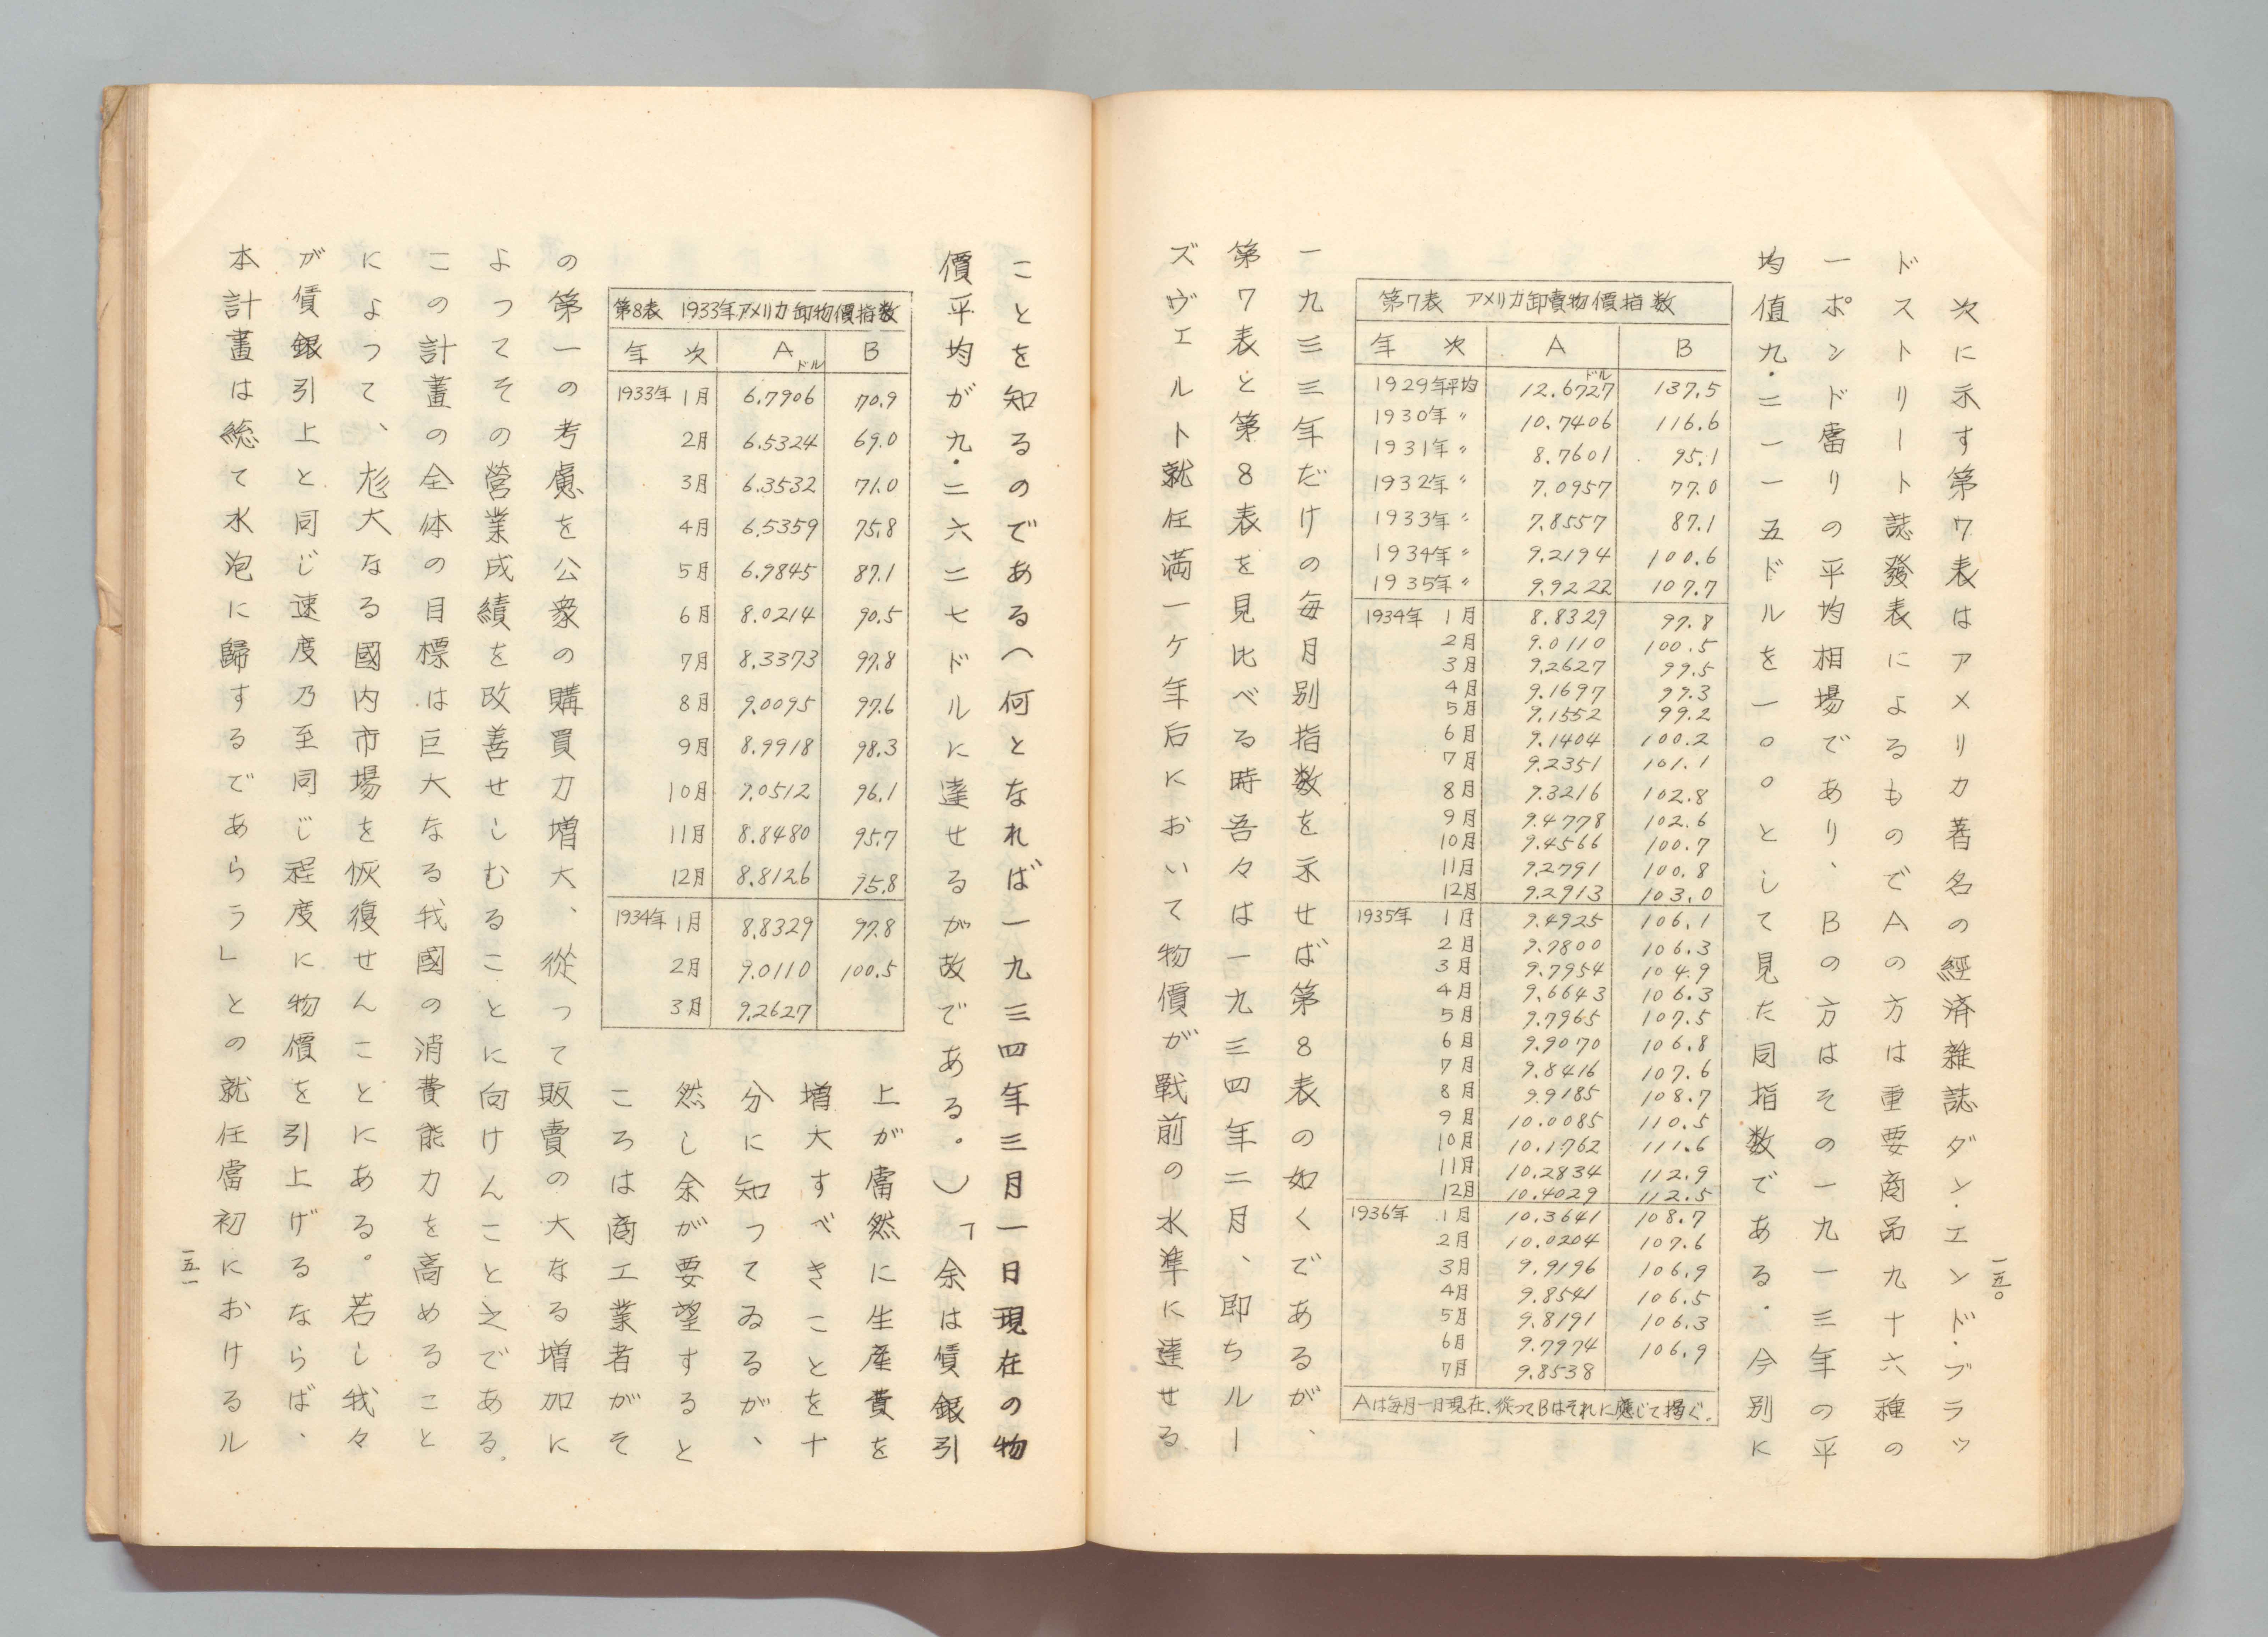 一五〇
次に示す第7表はアメリカ著名の経済雑誌ダン・エンド・ブラッ
ドストリート誌發表によるものでAの方は重要商品九十六種の
一ポンド當りの平均相場であり、Bの方はその一九一三年の平
均値九・二一一五ドルを一〇〇として見た同指数である・今別に
第7表 アメリカ卸賣物價指数
年 次 A B
1929年平均 12.6727ドル 137.5
1930年〃 10.7406 116.6
1931年〃 8.7601 95.1
1932年〃 7.0957 77.0
1933年〃 7.8557 87.1
1934年〃 9.2194 100.6
1935年〃 9.9222 107.7
1934年 1月 8.8329 97.8
2月 9.0110 100.5
3月 9.2627 99.5
4月 9.1697 99.3
5月 9.1552 99.2
6月 9.1404 100.2
7月 9.2351 101.1
8月 9.3216 102.8
9月 9.4778 102.6
10月 9.4566 100.7
11月 9.2791 100.8
12月 9.2913 103.0
1935年 1月 9.4925 106.1
2月 9.7800 106.3
3月 9.7954 104.9
4月 9.6643 106.3
5月 9.7965 107.5
6月 9.9070 106.8
7月 9.8416 107.6
8月 9.9185 108.7
9月 10.0085 110.5
10月 10.1762 111.6
11月 10.2834 112.9
12月 10.4029 112.5
1936年 1月 10.3641 108.7
2月 10.0204 107.6
3月 9.9196 106.9
4月 9.8541 106.5
5月 9.8191 106.3
6月 9.7974 106.9
7月 9.8538
Aは毎月一日現在、從つてBはそれに應じて掲ぐ。
一九三三年だけの毎月別指数を示せば第8表の如くであるが、
第7表と第8表を見比べる時吾々は一九三四年二月、即ちルー
ズヴェルト就任満一ケ年后において物價が戰前の水準に達せる
ことを知るのである(何となれば一九三四年三月一日現在の物
價平均が九・二六二七ドルに達せるが故である。)「余は賃銀引
第8表 1933年アメリカ卸物價指数
年 次 Aドル B
1933年 1月 6.7906 70.9
2月 6.5324 69.0
3月 6.3532 71.0
4月 6.5359 75.8
5月 6.9845 87.1
6月 8.0214 90.5
7月 8.3373 97.8
8月 9.0095 97.6
9月 8.9918 98.3
10月 9.0512 96.1
11月 8.8480 95.7
12月 8.8126 95.8
1934年 1月 8.8329 97.8
2月 9.0110 100.5
3月 9.2627
上が當然に生産費を
増大すべきことを十
分に知つてゐるが、
然し余が要望すると
ころは商工業者がそ
の第一の考慮を公衆の購買力増大、從つて販賣の大なる増加に
よつてその營業成績を改善せしむることに向けんこと之である。
この計畫の全体の目標は巨大なる我國の消費能力を高めること
によつて、尨大なる國内市場を恢復せんことにある。若し我々
が賃銀引上と同じ速度乃至同じ程度に物價を引上げるならば、
本計畫は総て水泡に歸するであらう」との就任當初におけるル
一五一